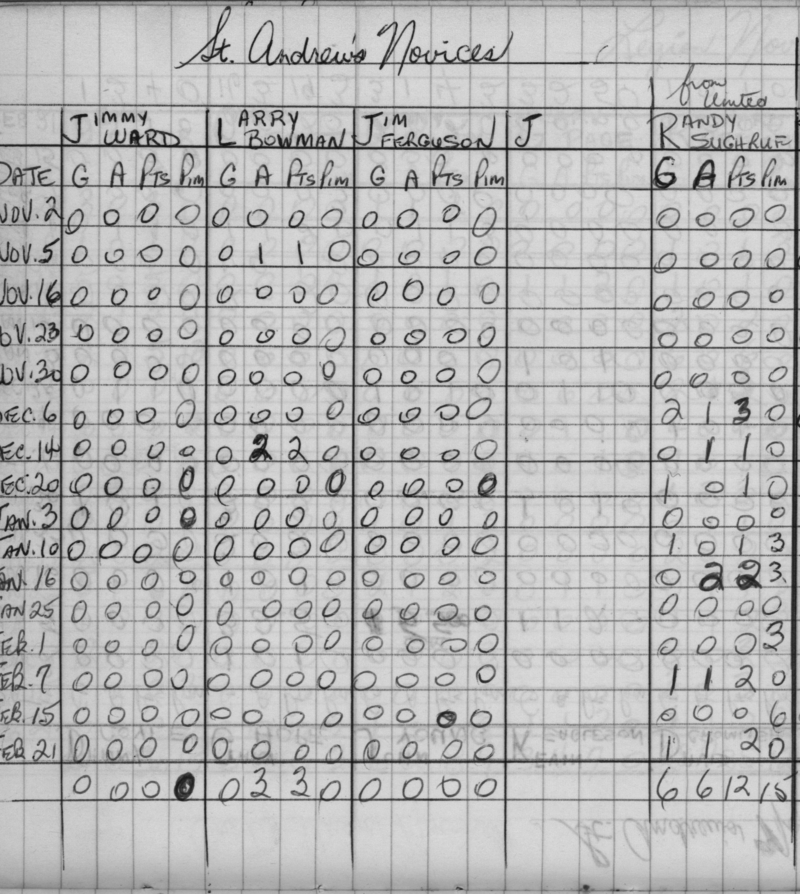 St. Andrew's Novices
from United
JIMMY WARD LARRY BOWMAN JIM FERGUSON J RANDY SUGHRUE
DATE G A PTS PIM G A PTS PIM G A PTS PIM G A PTS PIM
NOV. 2 0 0 0 0 0 0 0 0 0 0 0 0 0 0 0 0
NOV. 5 0 0 0 0 0 1 1 0 0 0 0 0 0 0 0 0
NOV. 16 0 0 0 0 0 0 0 0 0 0 0 0 0 0 0 0
OV. 23 0 0 0 0 0 0 0 0 0 0 0 0 0 0 0 0
OV. 30 0 0 0 0 0 0 0 0 0 0 0 0 0 0 0 0
EC. 6 0 0 0 0 0 0 0 0 0 0 0 0 2 1 3 0
EC. 14 0 0 0 0 0 2 2 0 0 0 0 0 0 1 1 0
EC. 20 0 0 0 0 0 0 0 0 0 0 0 0 1 0 1 0
JAN. 3 0 0 0 0 0 0 0 0 0 0 0 0 0 0 0 0
JAN. 10 0 0 0 0 0 0 0 0 0 0 0 0 1 0 1 3
AN. 16 0 0 0 0 0 0 0 0 0 0 0 0 0 2 2 3
AN 25 0 0 0 0 0 0 0 0 0 0 0 0 0 0 0 0
FEB. 1 0 0 0 0 0 0 0 0 0 0 0 0 0 0 0 3
FEB. 7 0 0 0 0 0 0 0 0 0 0 0 0 1 1 2 0
FEB. 15 0 0 0 0 0 0 0 0 0 0 0 0 0 0 0 6
FEB 21 0 0 0 0 0 0 0 0 0 0 0 0 1 1 2 0
0 0 0 0 0 3 3 0 0 0 0 0 6 6 12 15